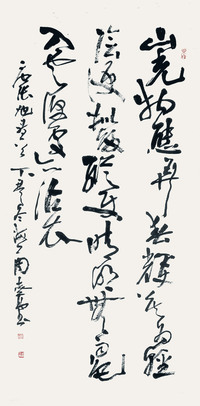 山光物態弄春輝莫為輕
陰便擬歸縱使晴明無雨色
入雲深處亦沾衣
張旭 周志高書